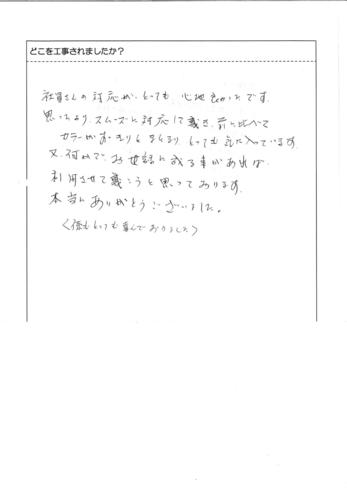 どこを工事されましたか？
社員さんの対応が、とっても 心地良かったです。
思ったより、スムーズに対応して戴き、前に比べて
カラーがすっきりと とっても気に入っています。
又、何かで、お世話に成る事があれば
利用させて戴こうと思っております。
本当にありがとうございました。
とっても喜んでおりました